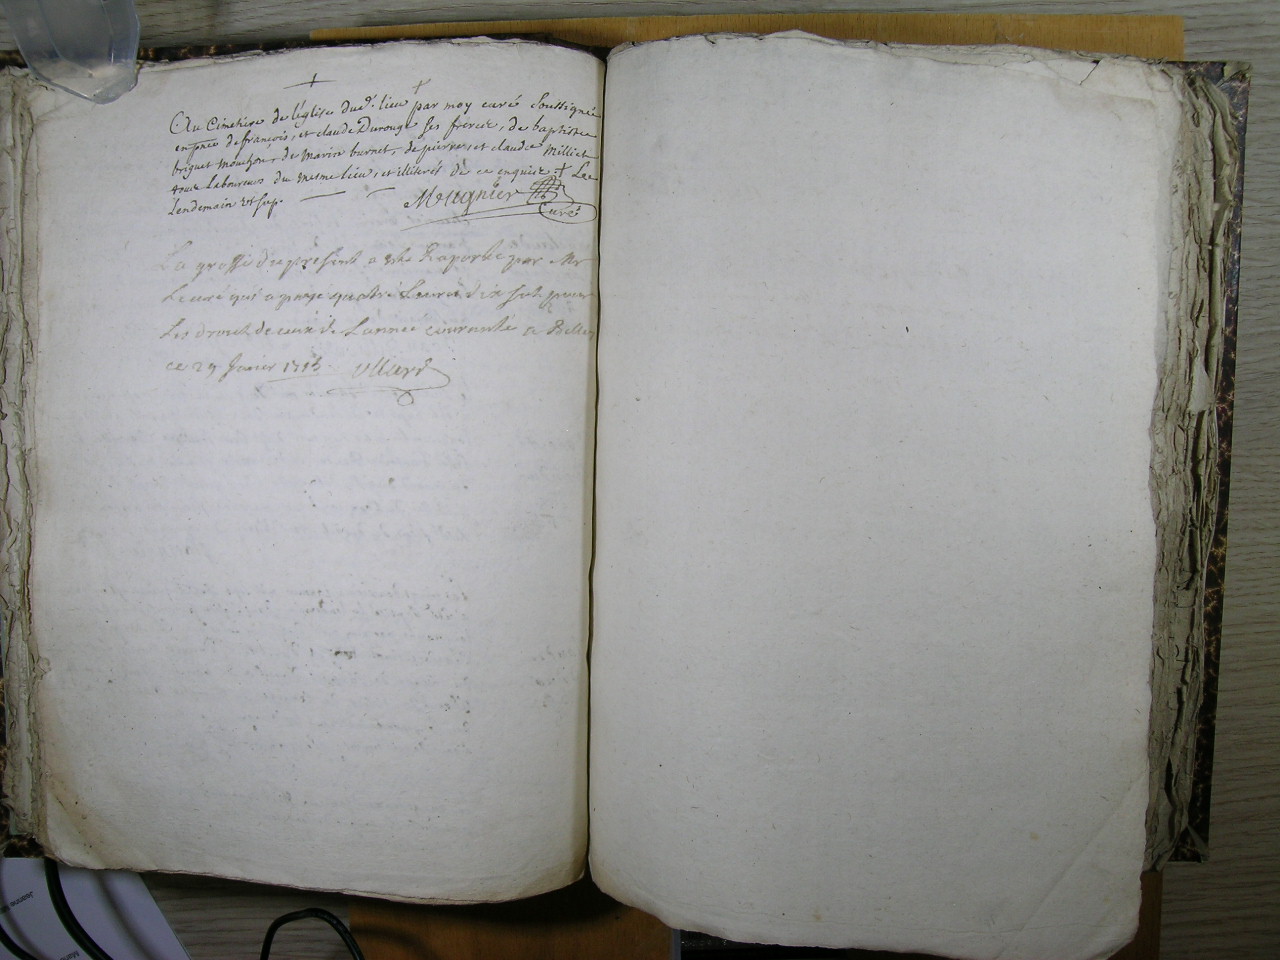 Au Cimetiere de l'église dud.t lieu par moy curé soussigné
en pnce de françois, et claude Durouge ses freres, de baptiste
briguet mouchon, de marin burnet, de pierre, et claude Milliet
tous Laboureurs du mesme lieu, et illiterés de ce enquis + Le
Lendemain ut sup.
Meugnier Curé
La grosse du present a esté Raporté par Mr
Le curé qui a payé quatre Livres dix sols pour
Les droits de ceux de L'année courante a Belley
ce 29 Janvier